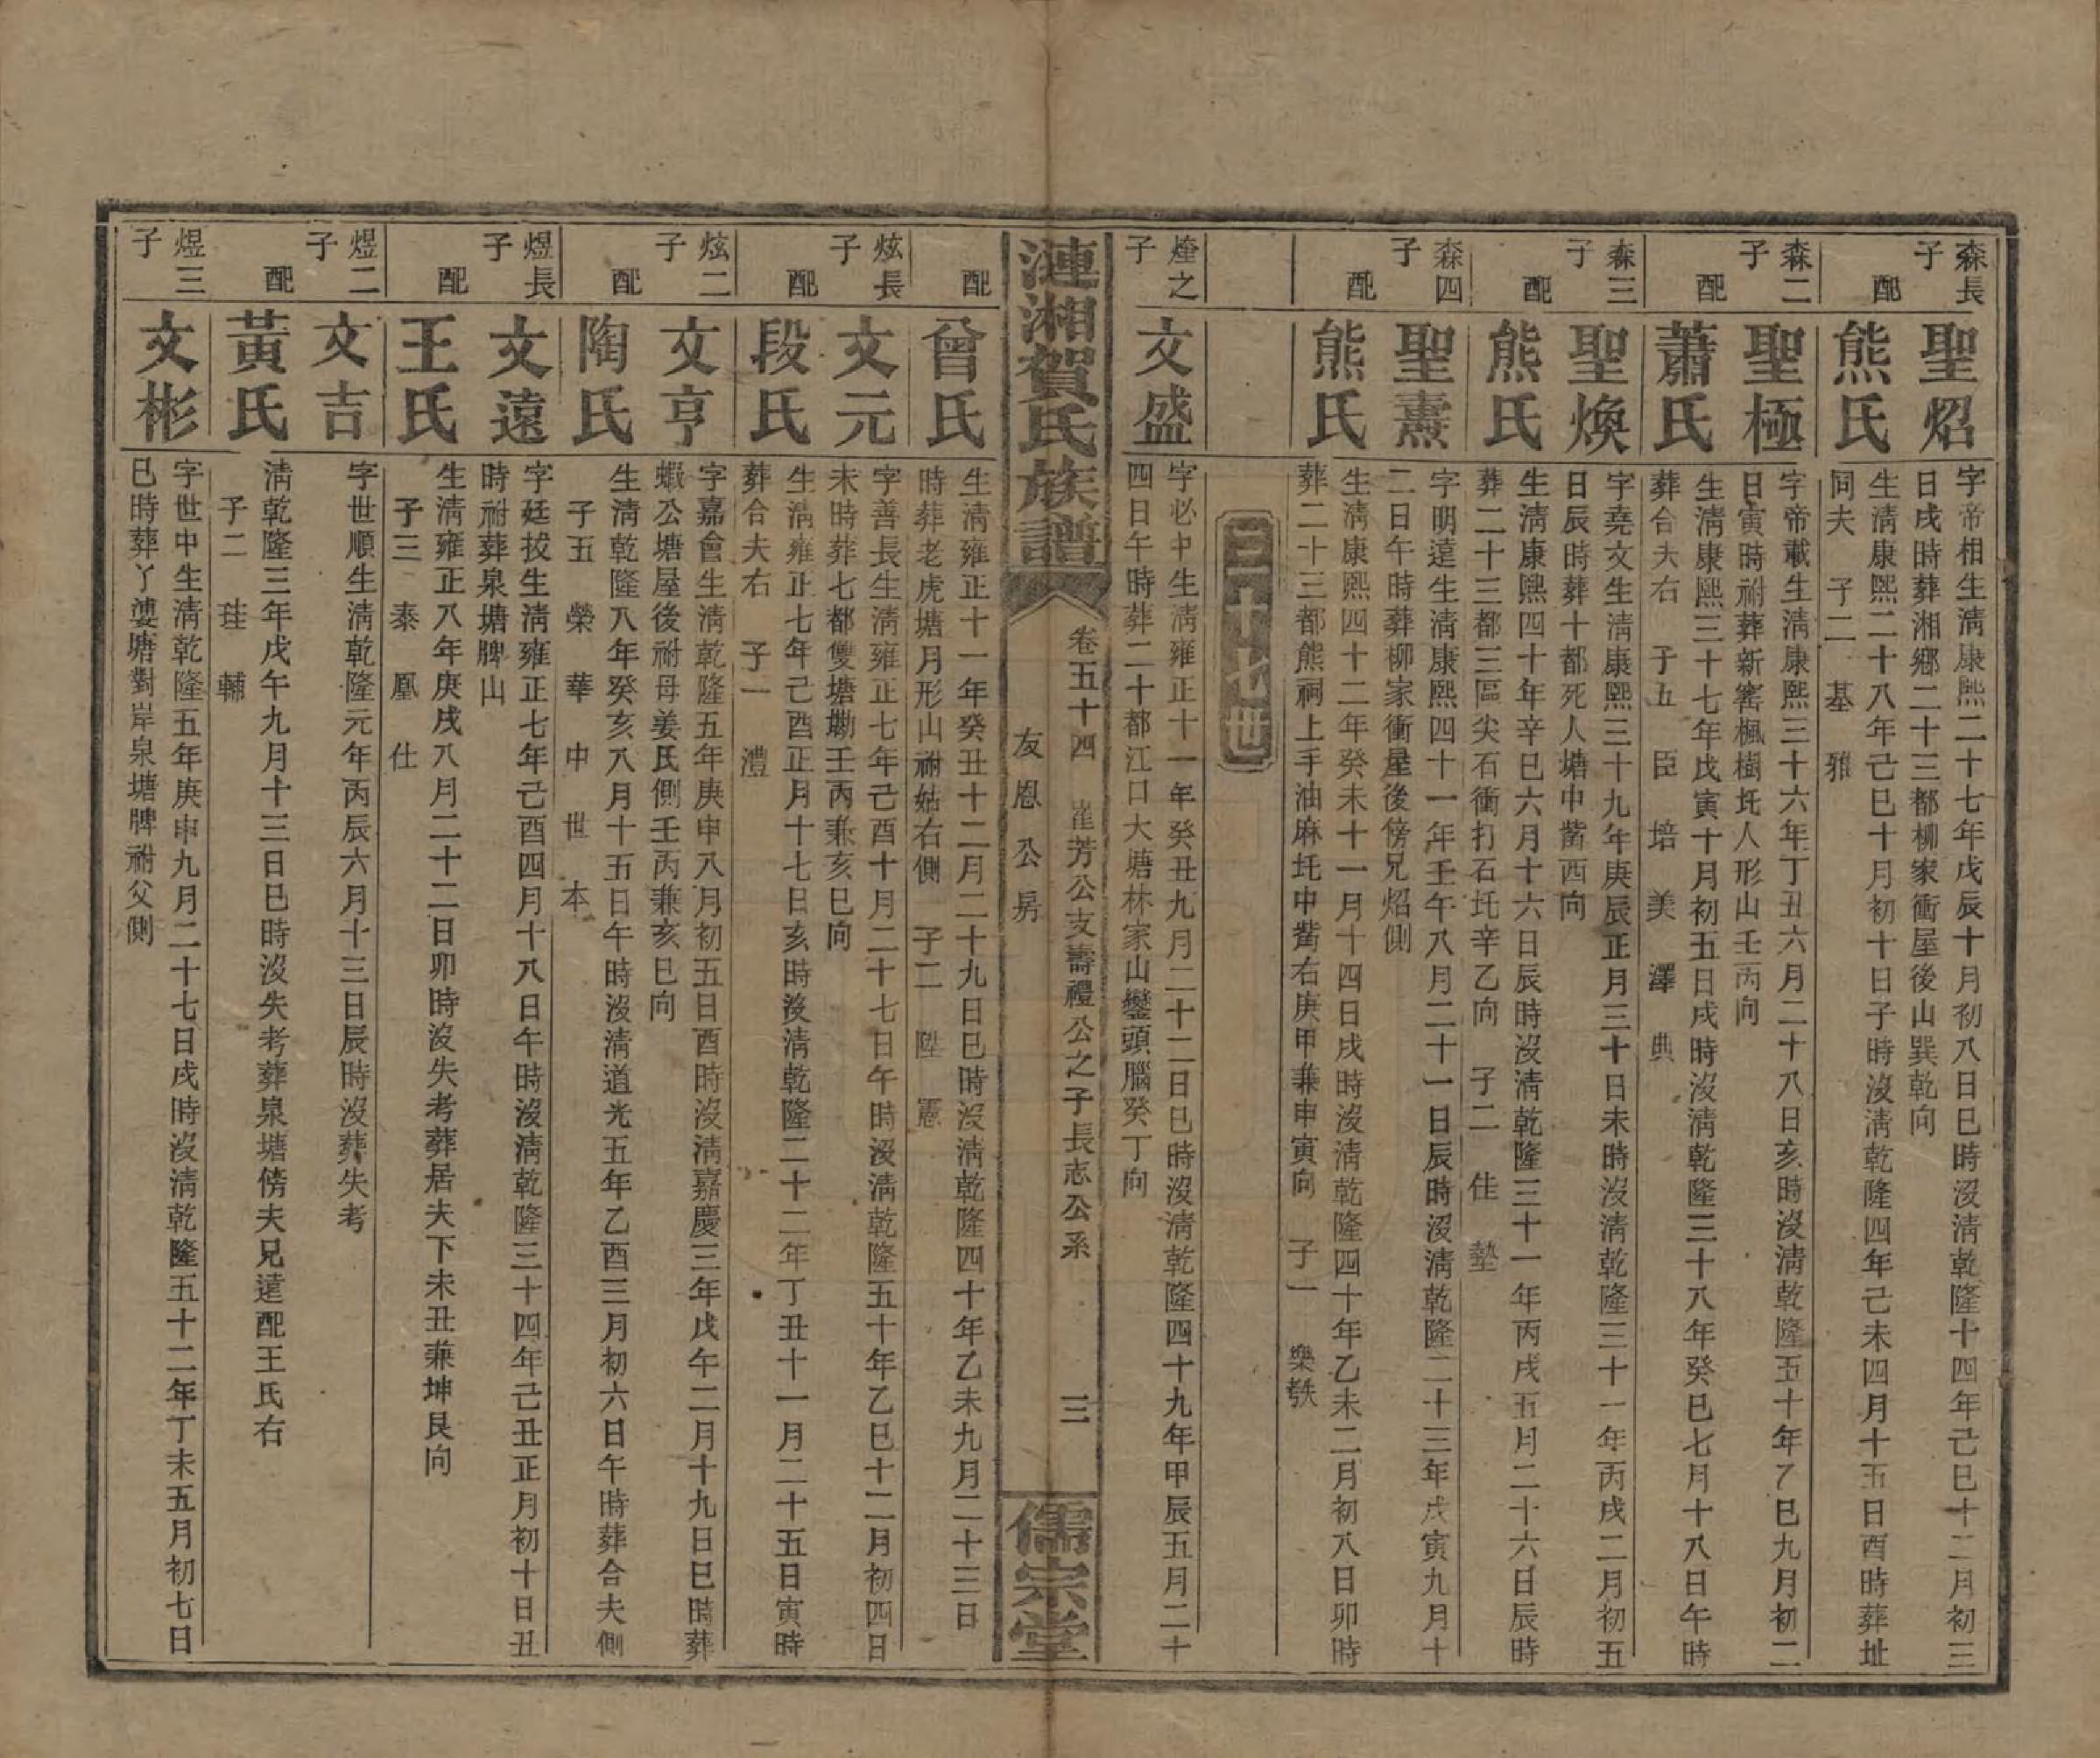 森長子
聖炤
字帝相生清康熙二十七年戊辰十月初八日巳時沒清乾隆十四年己巳十二月初三
日戌時葬湘鄉二十三都柳家衝屋後山巽乾向
配
熊氏
生清康熙二十八年己巳十月初十日子時沒清乾隆四年己未四月十五日酉時葬址
同夫 子二 基 雅
森二子
聖極
字帝載生清康熙三十六年丁丑六月二十八日亥時沒清乾隆五十年乙巳九月初二
日寅時祔葬新窰楓樹圫人形山壬丙向
配
蕭氏
生清康熙三十七年戊寅十月初五日戌時沒清乾隆三十八年癸巳七月十八日午時
葬合夫右 子五 臣 培 美 澤 典
森三子
聖煥
字堯文生清康熙三十九年庚辰正月三十日未時沒清乾隆三十一年丙戌二月初五
日辰時葬十都死人塘中觜西向
配
熊氏
生清康熙四十年辛巳六月十六日辰時沒清乾隆三十一年丙戌五月二十六日辰時
葬二十三都三區尖石衝打石圫辛乙向 子二 佳 塾
森四子
聖燾
字明遠生清康熙四十一年壬午八月二十一日辰時沒清乾隆二十三年戊寅九月十
二日午時葬柳家衝屋後傍兄炤側
配
熊氏
生清康熙四十二年癸未十一月十四日戌時沒清乾隆四十年乙未二月初八日卯時
葬二十三都熊祠上手油麻圫中觜右庚甲兼申寅向 子一 樂
三十七世
煃之子
文盛
字必中生清雍正十一年癸丑九月二十二日巳時沒清乾隆四十九年甲辰五月二十
四日午時葬二十都江口大塘林家山鑾頭腦癸丁向
漣湘賀氏族譜
卷五十四 崔芳公支壽禮公之子長志公系 三
友恩公房
儒宗堂
配
曾氏
生清雍正十一年癸丑十二月二十九日巳時沒清乾隆四十年乙未九月二十三日
時葬老虎塘月形山祔姑右側 子二 陞 憲
炫長子
文元
字善長生清雍正七年己酉十月二十七日午時沒清乾隆五十年乙巳十二月初四日
未時葬七都雙塘塅壬丙兼亥巳向
配
段氏
生清雍正七年己酉正月十七日亥時沒清乾隆二十二年丁丑十一月二十五日寅時
葬合夫右 子一 澧
炫二子
文亨
字嘉會生清乾隆五年庚申八月初五日酉時沒清嘉慶三年戊午二月十九日巳時葬
蝦公塘屋後祔母姜氏側壬丙兼亥巳向
配
陶氏
生清乾隆八年癸亥八月十五日午時沒清道光五年乙酉三月初六日午時葬合夫側
子五 榮 華 中 世 本
煜長子
文遠
字廷拔生清雍正七年己酉四月十八日午時沒清乾隆三十四年己丑正月初十日丑
時祔葬泉塘脾山
配
王氏
生清雍正八年庚戌八月二十二日卯時沒失考葬居夫下未丑兼坤艮向
子三 泰 凰 仕
煜二子
文吉
字世順生清乾隆元年丙辰六月十三日辰時沒葬失考
配
黃氏
清乾隆三年戊午九月十三日巳時沒失考葬泉塘傍夫兄遠配王氏右
子二 珪 輔
煜三子
文彬
字世中生清乾隆五年庚申九月二十七日戌時沒清乾隆五十二年丁未五月初七日
巳時葬丫婆塘對岸泉塘脾祔父側